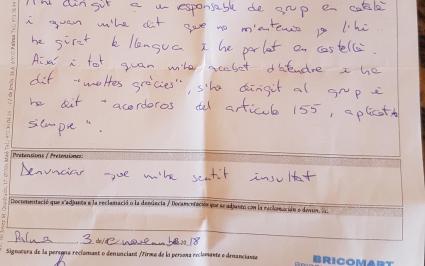 dirigit a un responsable de grup en català
i quan m'ha dit que no m'entenia jo l'hi
he girat la llengua i he parlat en castellà.
Així i tot quan m'ha acabat d'atendre i he
dit "moltes gràcies", s'ha dirigit al grup i
ha dit "acordaros del articulo 155, aplicarlo
siempre".
Pretensions / Pretensiones:
Denunciar que m'he sentit insultat
Documentació que s'adjunta a la reclamació o la denúncia / Documentación que se adjunta con la reclamación o denuncia.
Palma, 3 de novembre 18
Signatura de la persona reclamant o denunciant / Firma de la persona reclamante o denunciante
BRICOMART